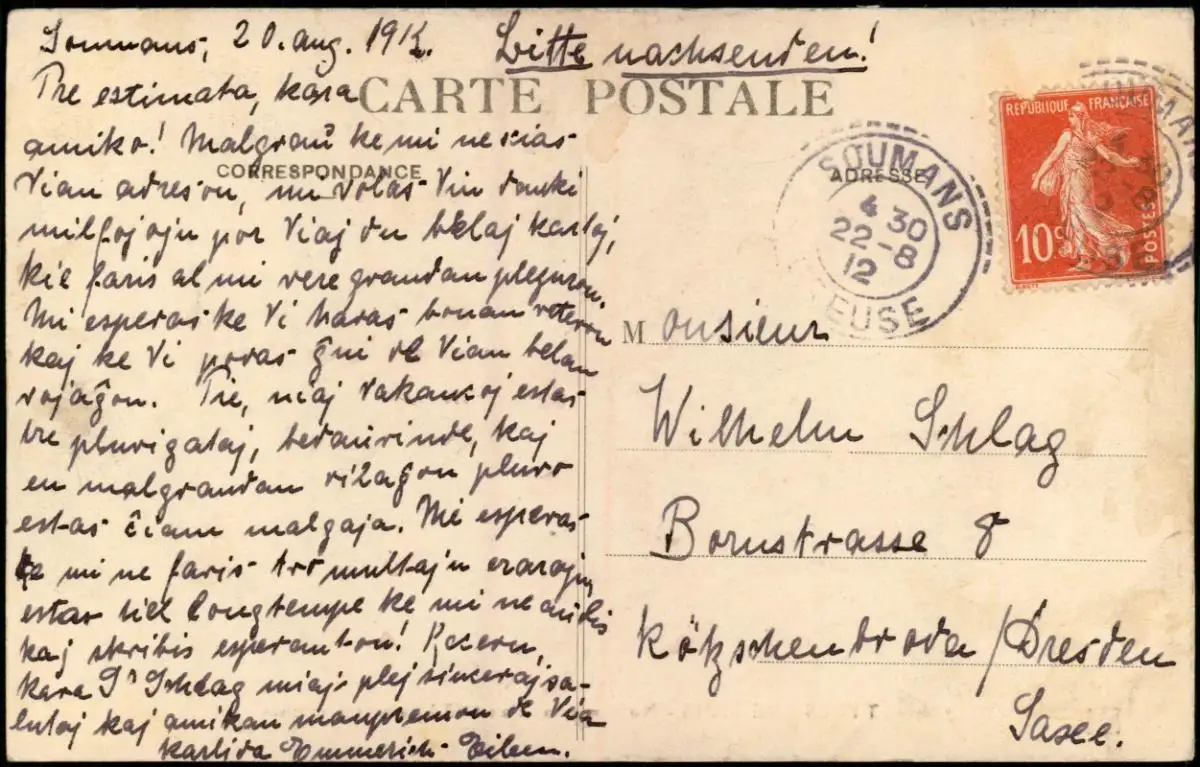 Soumans, 20. aug. 1912. Bitte nachsenden!
CARTE POSTALE
Tre estimata, kara
amiko! Malgraŭ ke mi ne scias
CORRESPONDANCE
Vian adreson, mi volas Vin danki
milfojojn por Viaj du belaj kartoj,
kie faris al mi vere grandan plezuron.
Mi esperas ke Vi havas bonan veteron
kaj ke Vi povas ĝui de Vian belan
vojaĝon. Tie, niaj vakancoj estas
tre pluvigataj, bedaŭrinde, kaj
en malgrandan vilaĝon pluvo
estas ĉiam malgaja. Mi esperas
ke mi ne faris tro multajn erarojn,
estas tiel longtempe ke mi ne
kaj skribis esperanton!
kara Dr Schlag miaj plej sincerajn sa-
lutoj kaj amikan manpremon de Via
Emmerich-
ADRESSE
SOUMANS
4 30
22-8
12
EUSE
REPUBLIQUE FRANÇAISE
10c
POSTES
Monsieur
Wilhelm Schlag
Bornstrasse 8
Kötzschenbroda/Dresden
Saxe.